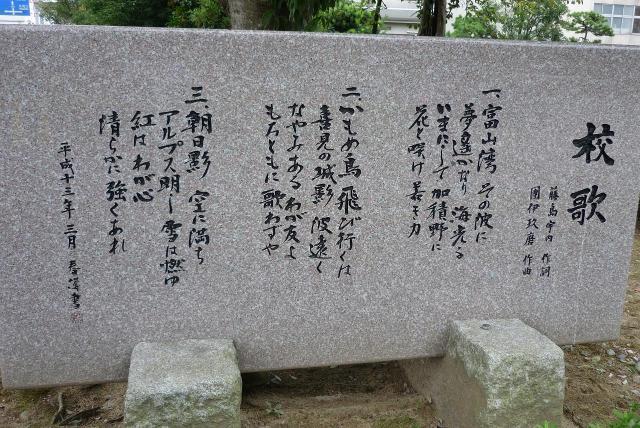 校歌
藤島宇内 作詞
團伊玖磨 作曲
一、富山湾 その波に
夢は遙かなり 海光る
いまにして 加積野に
花と咲け 若き力
二、かもめ鳥 飛び行くは
喜見の城影 波遠く
なやみある わが友よ
もろともに 歌わずや
三、朝日影 空に満ち
アルプス明し 雪は燃ゆ
紅は わが心
清らかに 強くあれ
平成十三年三月